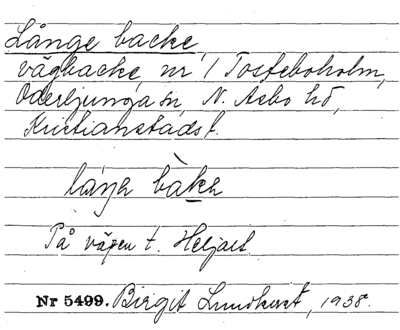 Långe backe
vägbacke, nr 1 Tosteboholm,
Oderljunga sn, N. Åsbo hd,
Kristianstads l.
På vägen t.
Nr 5499. Birgit Lundkvist, 1938.